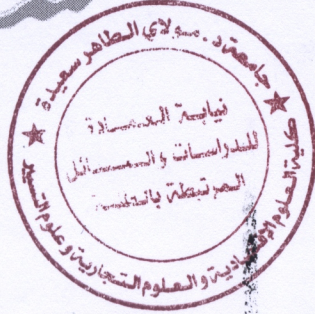 جامعة د. مولاي الطاهر سعيدة
كلية العلوم الاقتصادية والعلوم التجارية وعلوم التسيير
نيابة العمادة
للدراسات والمسائل
المرتبطة بالطلبة